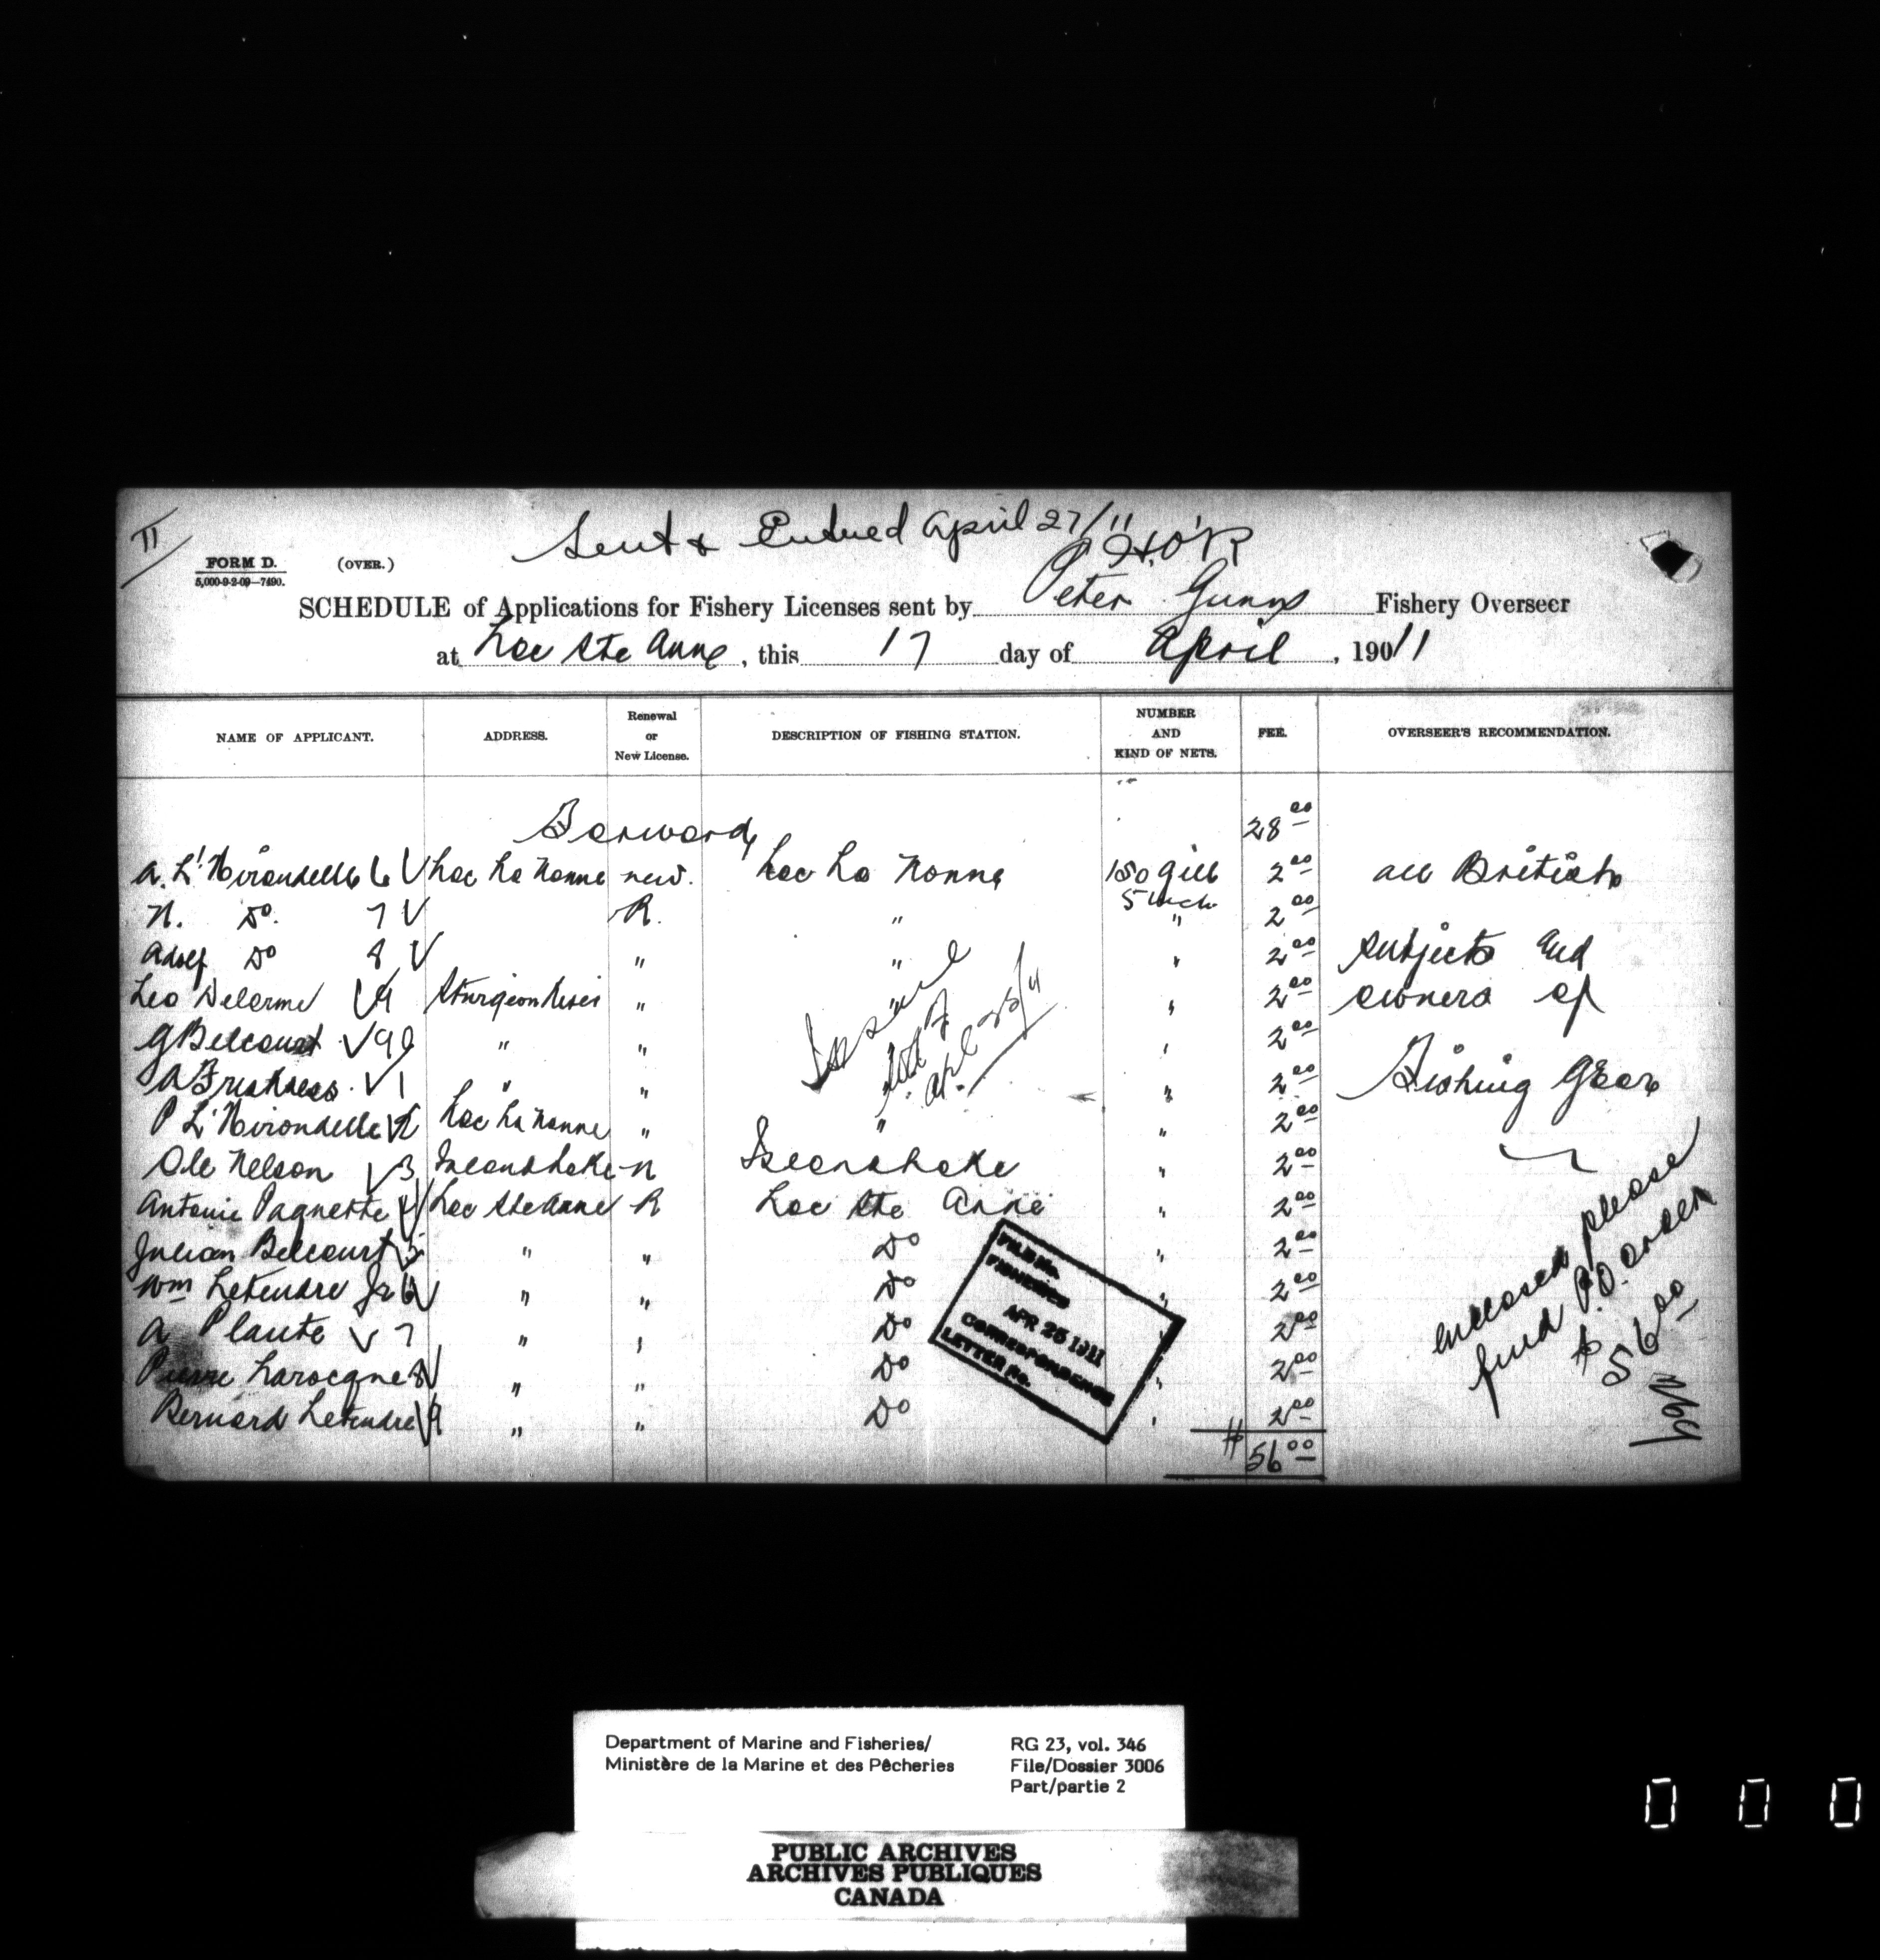 II
Sent & Entered April 27/11
H.O'R
FORM D. (OVER.)
5,000-9-2-09—7490.
SCHEDULE of Applications for Fishery Licenses sent by Peter Gunn Fishery Overseer
at Lac Ste Anne, this 17 day of April, 19011
NAME OF APPLICANT. ADDRESS. Renewal or New License. DESCRIPTION OF FISHING STATION. NUMBER AND KIND OF NETS. FEE. OVERSEER'S RECOMMENDATION.
Forward 28 00
A. L'Hirondelle 6 V Lac La Nonne new. Lac La Nonne 180 gill 2 00 all British
5 inch
N. Do. 7 V R. " " 2 00
Adolf Do 8 V " " " 2 00 subjects and
Leo Delorme V 9 Sturgeon River " " " 2 00 owners of
G Belcourt V 90 " " " 2 00
A V 1 " " " 2 00 Fishing Gear
P L'Hirondelle V 2 Lac La Nonne " " " 2 00
Ole Nelson V 3 Lake N Lake " 2 00
Antonie Paquette 4 V Lac Ste Anne R Lac Ste Anne " 2 00
Julian Belcourt V 5 " " Do " 2 00
Wm Letendre Jr 6 V " " Do " 2 00
A Plante V 7 " " Do " 2 00
Pierre Larocque 8 V " " Do " 2 00
Bernard Letendre V 9 " " Do " 2 00
$ 56 00
Apl 25/11
enclosed please
find P.O. order
$ 56 00
FILE No.
FISHERIES
APR 25 1911
CORRESPONDENCE
LETTER No.
Department of Marine and Fisheries/ RG 23, vol. 346
Ministère de la Marine et des Pêcheries File/Dossier 3006
Part/partie 2
PUBLIC ARCHIVES
ARCHIVES PUBLIQUES
CANADA
0 0 0